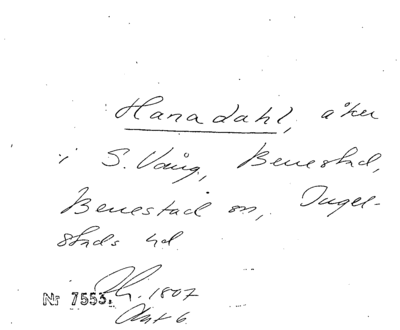 Hanadahl, åker
i S. Vång, Benestad,
Benestad sn, Ingel-
stads hd
Nr 7553. 1807
Akt 6